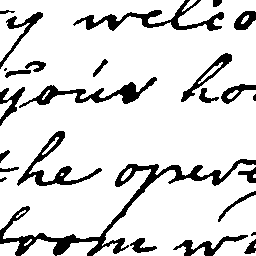 y welco
your ho
the opera
from w